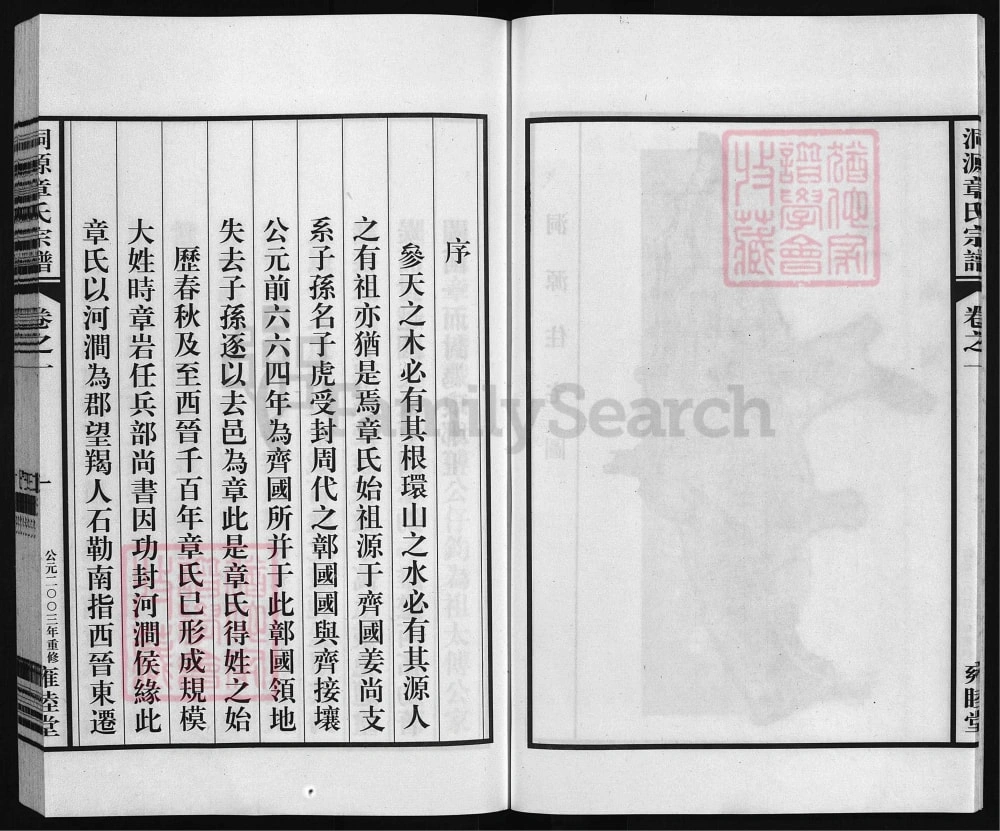 洞源章氏宗譜
卷之一
雍睦堂
猶他家
譜學會
特藏
FamilySearch
序
參天之木必有其根環山之水必有其源人
之有祖亦猶是焉章氏始祖源于齊國姜尚支
系子孫名子虎受封周代之鄣國國與齊接壤
公元前六六四年為齊國所并于此鄣國領地
失去子孫逐以去邑為章此是章氏得姓之始
歷春秋及至西晉千百年章氏已形成規模
大姓時章岩任兵部尚書因功封河澗侯緣此
章氏以河澗為郡望羯人石勒南指西晉東遷
洞源章氏宗譜
卷之一
一
公元二〇〇三年重修
雍睦堂